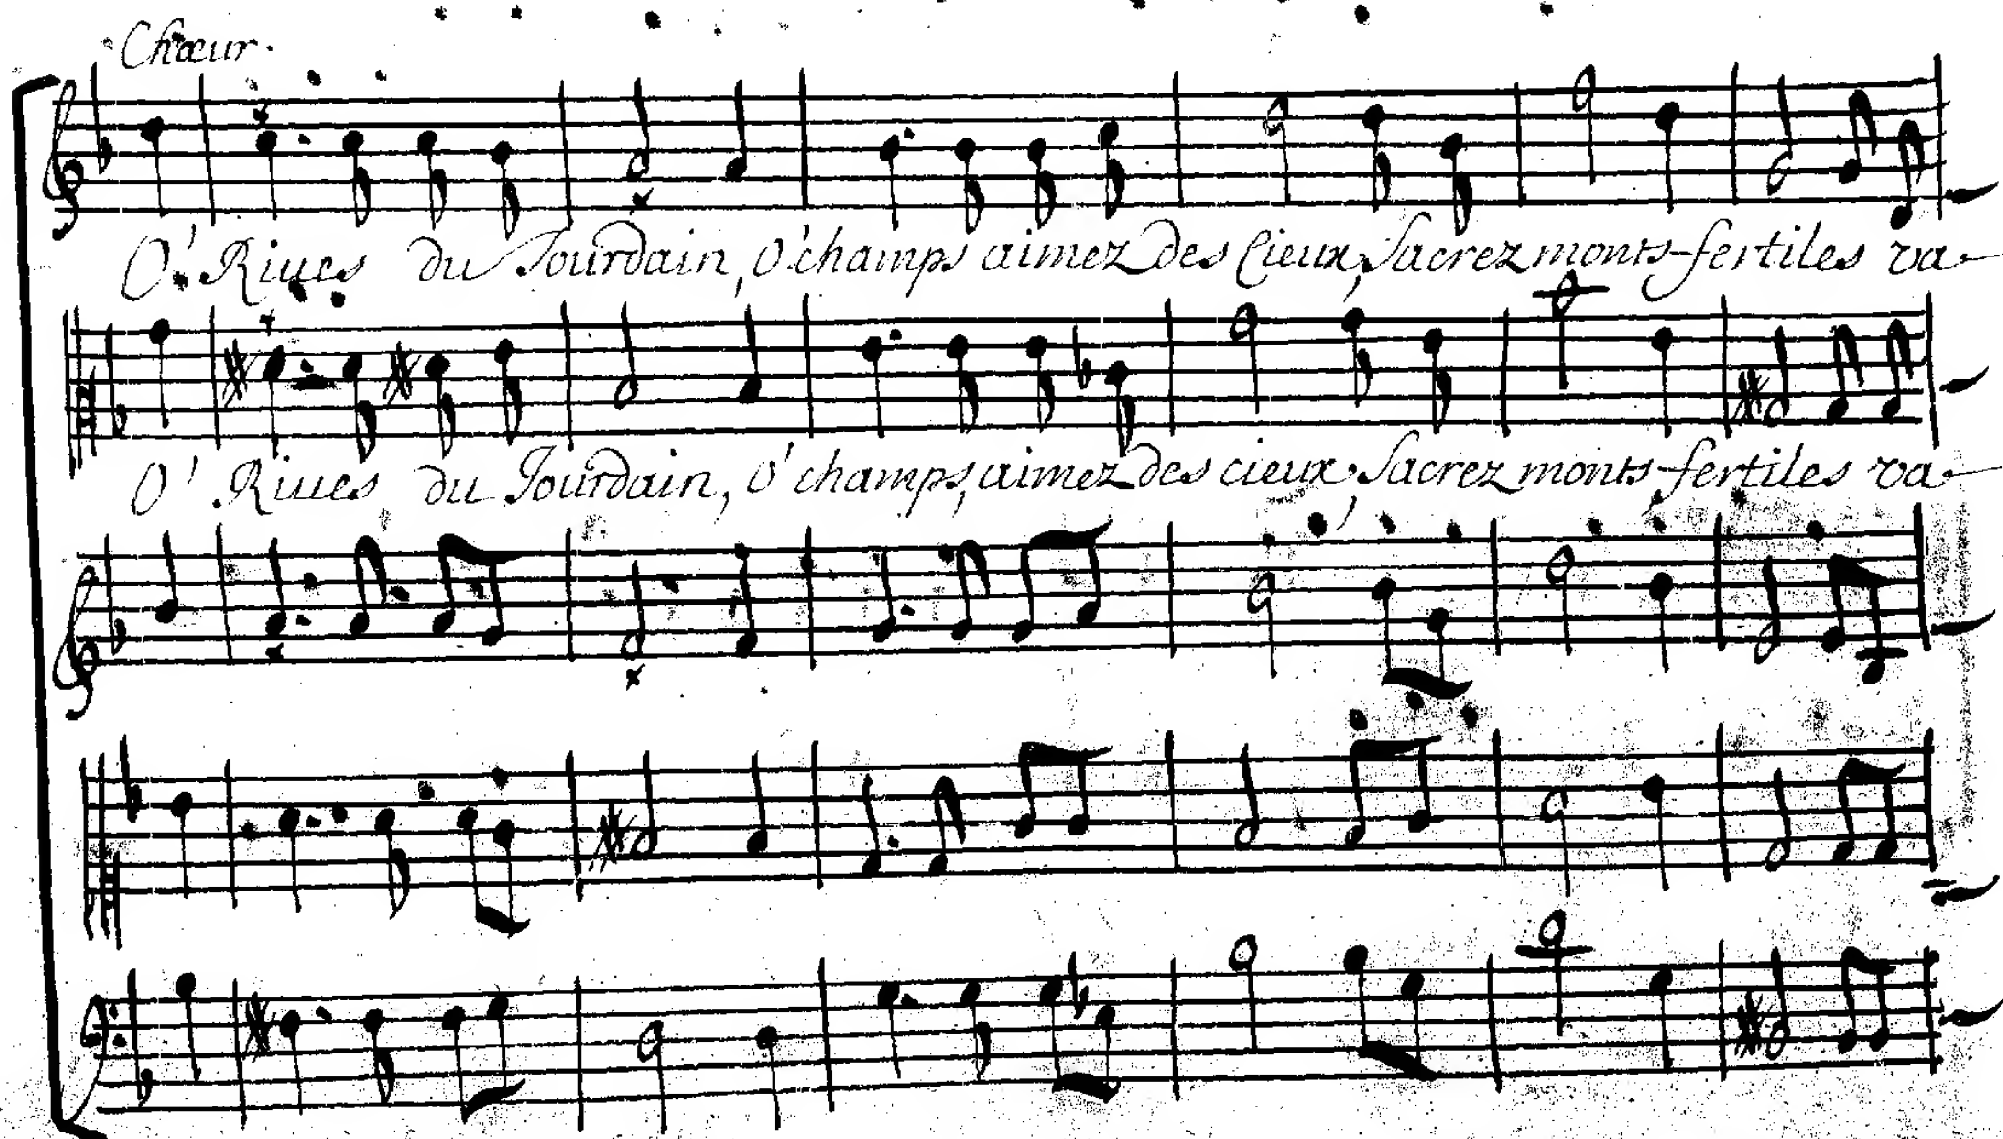 Chœur.
O'. Riues du Jourdain, O' champs aimez des Cieux, Sacrez monts fertiles va-
O' Riues du Jourdain, O' champs, aimez des cieux, Sacrez monts, fertiles va-